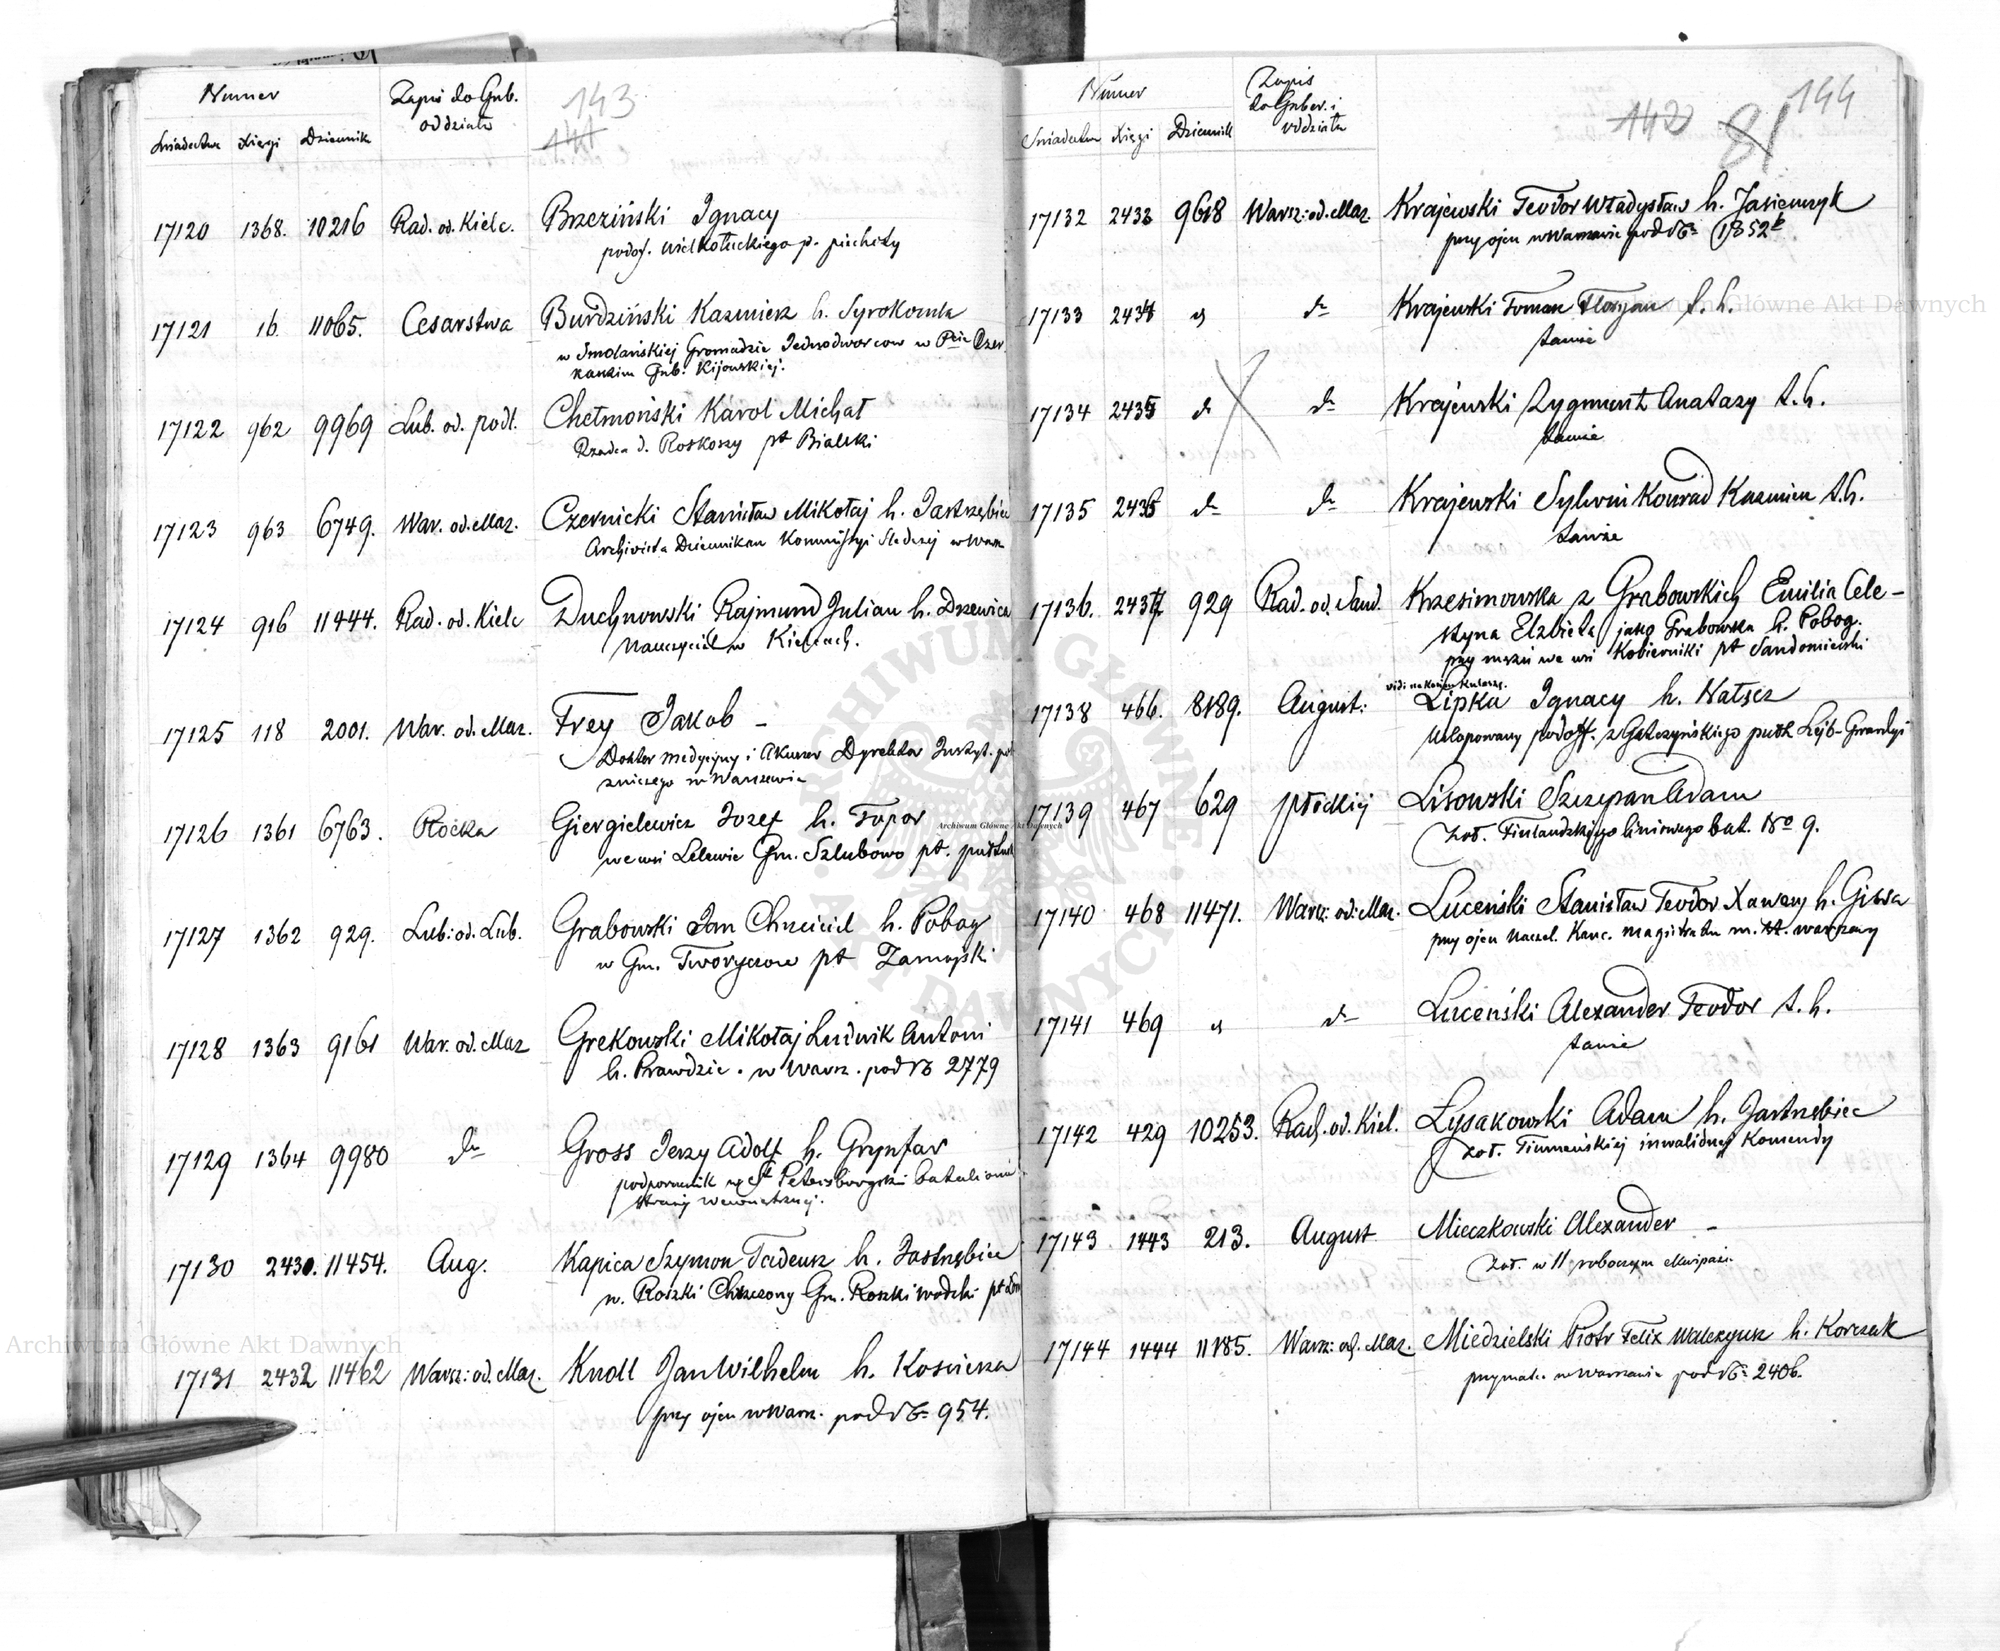 Numer
Zapis do Gub.
oddziału
Świadectwa Xięgi Dziennik
143
144
17120 1368. 10216 Rad. od. Kielc. Brzeziński Ignacy
podof. Wielkołuckiego p. piechoty
17121 16 11065. Cesarstwa Burdziński Kazmierz h. Syrokomla
w Smolańskiej Gromadzie Jednodworcow w Pcie Czer
kaskim Gub. Kijowskiej.
17122 962 9969 Lub. od. podl. Chełmoński Karol Michał
Rządca d. Roskoszy pt Bialski
17123 963 6749. War. od. Maz. Czernicki Stanisław Mikołaj h. Jastrzębiec
Archivista Dziennikarz Kommissyi Sledczej w Warsz
17124 916 11444. Rad. od. Kielc Duchnowski Rajmund Julian h. Drzewica
Nauczyciel w Kielcach.
17125 118 2001. War. od. Maz. Frey Jakob –
Doktor medycyny i Akuszer Dyrektor Instyt. poł
zniczego w Warszawie
17126 1361 6763. Płocka Giergielewicz Jozef h. Topor
we wsi Lelewie Gm. Szlubowo pt. pułtusk
17127 1362 929. Lub: od. Lub. Grabowski Jan Chrzciciel h. Pobog
w Gm. Tworyczow pt Zamojski
17128 1363 9161 War. od. Maz Grekowski Mikołaj Ludwik Antoni
h. Prawdzic. w Warsz. pod № 2779
17129 1364 9980 do Gross Jerzy Adolf h. Grynfar
podporucznik w St Petersburgski batalionu
Straży wewnętrznej.
17130 2430. 11454. Aug. Kapica Szymon Tadeusz h. Jastrzębiec
w. Roszki Chrzczony Gm. Roszki wodźki pt Łom
17131 2432 11462 Warsz: od. Maz. Knoll Jan Wilhelm h. Kościesza
przy ojcu w Warsz. pod № 954.
Numer
Zapis
do Guber. i
oddziału
Świadectwa Xięgi Dziennik
142 81 144
17132 2433 9618 Warsz: od. Maz. Krajewski Teodor Władysław h. Jasienczyk
przy ojcu w Warszawie pod № 1852b
17133 2434 do Krajewski Roman Floryan t. h.
tamże
17134 2435 do do Krajewski Zygmunt Anatazy t. h.
tamże
17135 2436 do do Krajewski Sylwin Konrad Kazmierz t. h.
tamże
17136. 2437 929 Rad. od. Sand. Krzesimowska z Grabowskich Emilia Cele–
styna Elzbieta jako Grabowska h. Pobog.
przy mężu we wsi Kobierniki pt Sandomierski
vidi na końcu
17138 466. 8189. August: Lipka Ignacy h. Nałęcz
Urlopowany podoff. z Gatczyńskiego pułk Lejb-Gwardyi
17139 467 629 płockiej Lisowski Szczepan Adam
żoł. Finlandzkiego liniowego bat. No 9.
17140 468 11471. Warsz: od: Maz. Luceński Stanisław Teodor Xawery h. Giwa
przy ojcu Naczel. Kanc. magistratu m. st. warszawy
17141 469 do Luceński Alexander Teodor t. h.
tamże
17142 429 10253. Rad. od. Kiel. Łysakowski Adam h. Jastrzębiec
żoł. Tiumeńskiej inwalidnej Komendy
17143 1443 213. August Mieczkowski Alexander –
żoł. w 11 roboczym ekwipażu
17144 1444 11185. Warsz: od. Maz. Miedzielski Piotr Felix Walezyusz h. Korczak
przy matce w Warszawie pod № 2406.
Archiwum Główne Akt Dawnych
Archiwum Główne Akt Dawnych
Archiwum Główne Akt Dawnych
ARCHIWUM GŁÓWNE AKT DAWNYCH